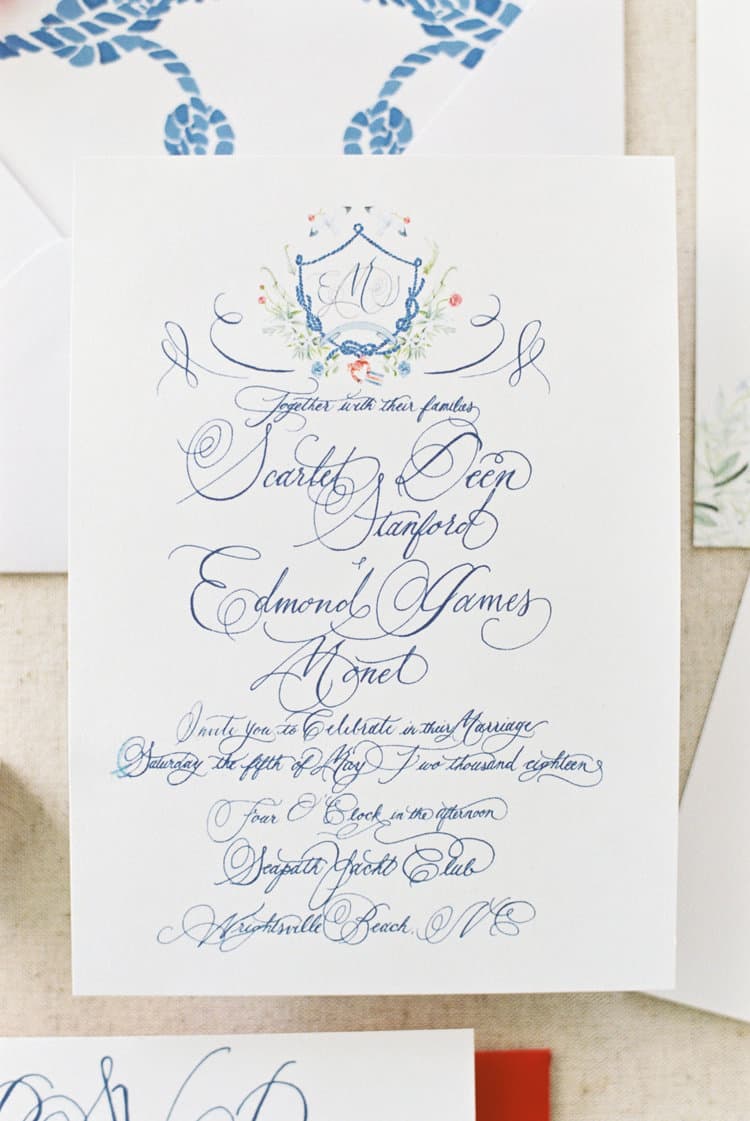 EMS
Together with their families
Scarlet Deen
Stanford
&
Edmond James
Monet
Invite you to Celebrate in their Marriage
Saturday the fifth of May Two thousand eighteen
Four O'Clock in the afternoon
Seapath Yacht Club
Wrightsville Beach, NC